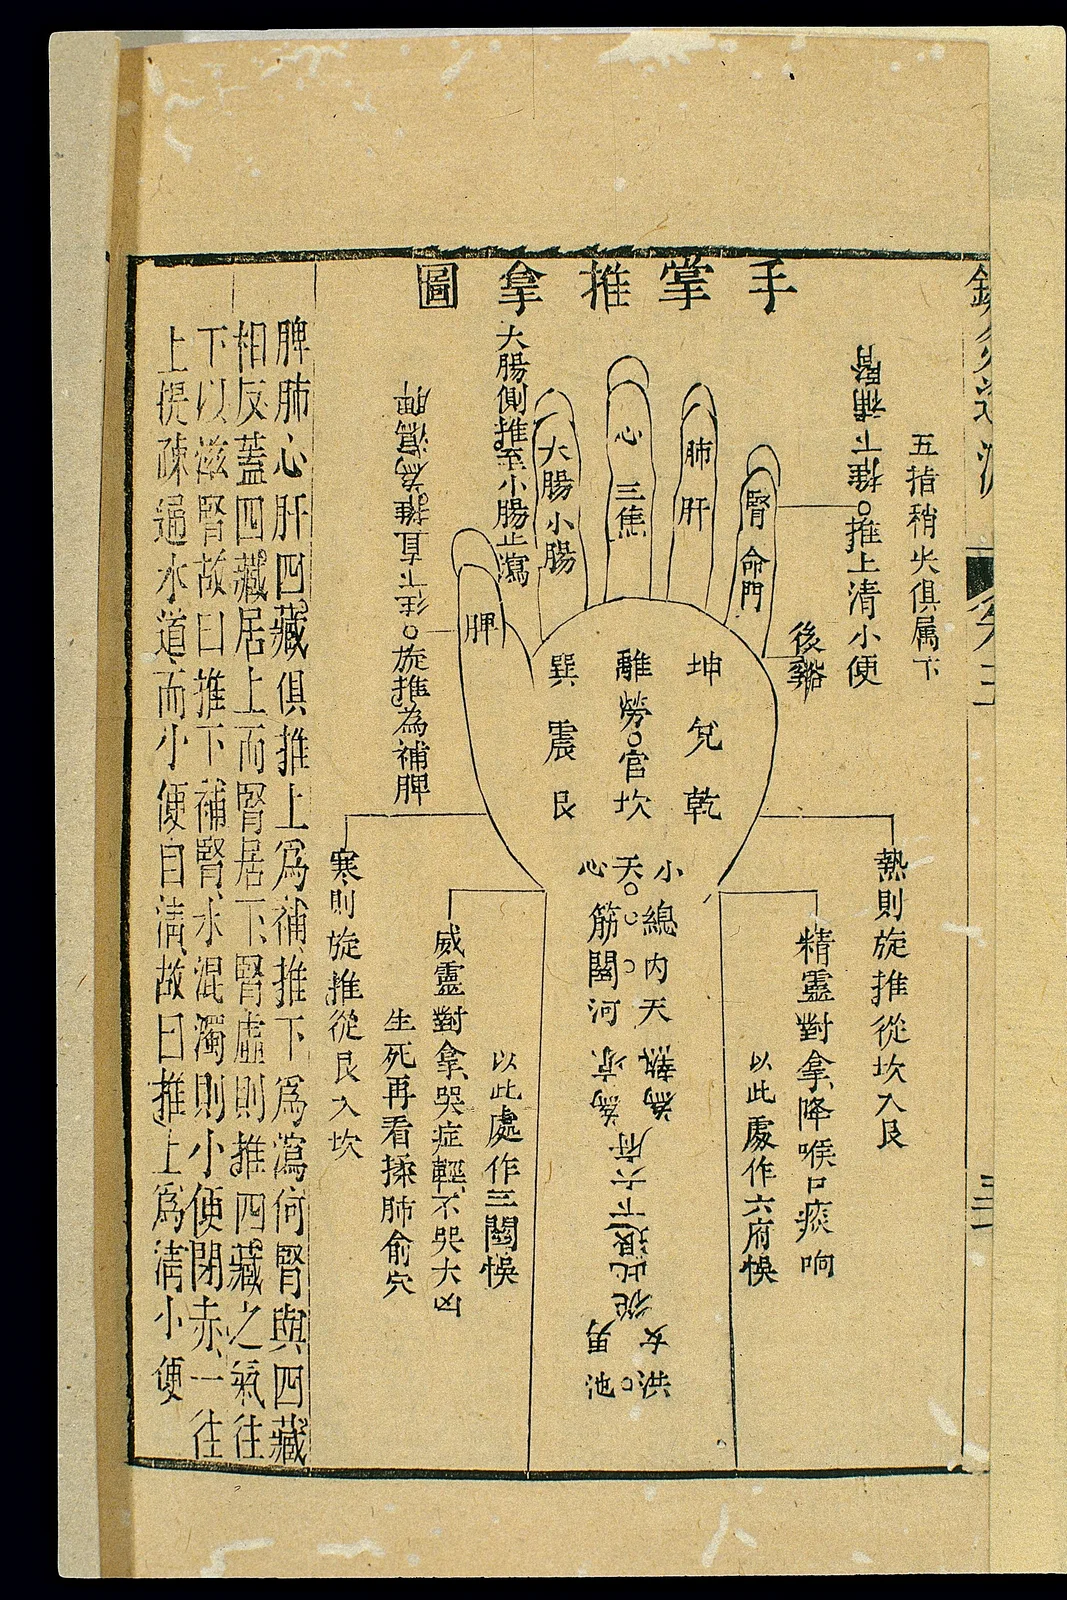 手掌推拿圖
五指稍尖俱属下
推下補腎
○推上清小便
後谿
大腸側推至小腸止瀉
往下直推為瀉脾
○旋推為補脾
腎
命門
肺
肝
心
三焦
大腸小腸
脾
坤兌乾
離勞○宫坎
巽震艮
小天心
總內天
筋關河
熱為
凉為
從此退下六府
女
男
洪○池
熱則旋推從坎入艮
精靈對拿降喉口痰响
以此處作六府悞
以此處作三關悞
威靈對拿哭症輕不哭大凶
生死再看揉肺俞穴
寒則旋推從艮入坎
脾肺心肝四藏俱推上爲補推下爲瀉何腎與四藏
相反蓋四藏居上而腎居下腎虛則推四藏之氣往
下以滋腎故曰推下補腎水混濁則小便閉赤一往
上提疎通水道而小便自淸故曰推上爲淸小便